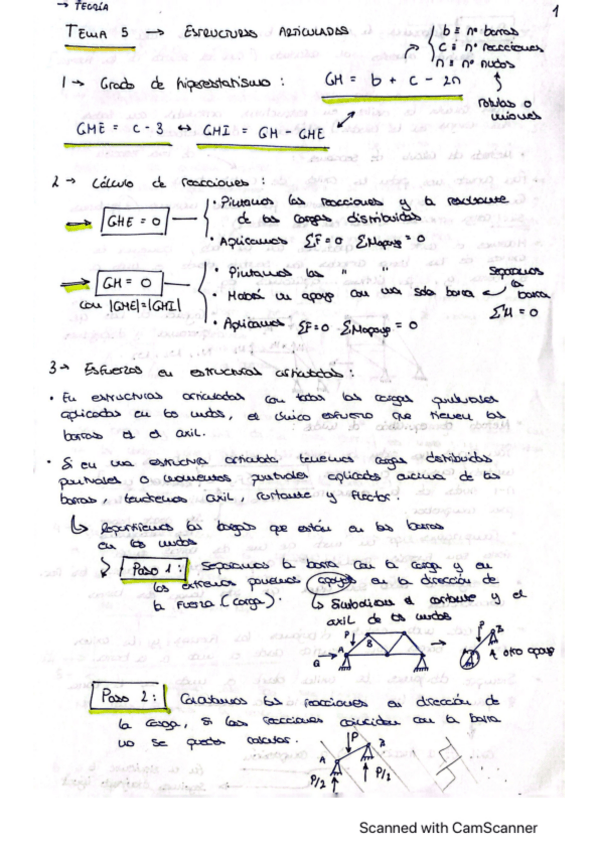 → TEORÍA
1
TEMA 5 → ESTRUCTURAS ARTICULADAS
b ≡ nº barras
c ≡ nº reacciones
n ≡ nº nudos
rótulas o uniones
1 → Grado de hiperestatismo: GH = b + c - 2n
GHE = c - 3 ↔ GHI = GH - GHE
2 → Cálculo de reacciones:
→ GHE = 0
• Pintamos las reacciones y la resultante
de las cargas distribuidas
• Aplicamos ΣF = 0 ΣMapoyo = 0
→ GH = 0
con |GHE|=|GHI|
• Pintamos las " "
• Habrá un apoyo con una sola barra
Separamos
la
barra
ΣM = 0
• Aplicamos ΣF=0 ΣMapoyo = 0
3 → Esfuerzos en estructuras articuladas:
• En estructuras articuladas con todas las cargas puntuales
aplicadas en los nudos, el único esfuerzo que tienen las
barras es el axil.
• Si en una estructura articulada tenemos cargas distribuidas
puntuales o momentos puntuales aplicados encima de las
barras, tendremos axil, cortante y flector.
↳ Repartiremos las cargas que estén en las barras
en los nudos
Paso 1: Separamos la barra con la carga y en
los extremos ponemos apoyos en la dirección de
la fuerza (carga).
↳ Simbolizan el cortante y el
axil de los nudos
P
A
B
Q
P
B
A
otro apoyo
Paso 2: Calculamos las reacciones en dirección de
la carga, si las reacciones coinciden con la barra
no se puede calcular.
A
P
B
P/2
P/2
Scanned with CamScanner